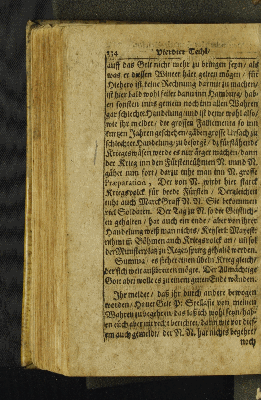 334 Vierdter Theil/
auff das Gelt nicht mehr zu bringen seyn/ als
was er diesen Winter hät gelten mögen/ für
Hiehero ist keine Rechnung darmit zu machen/
ist hier bald wohlfeiler dann in Hamburg/ hab
en sonsten uns gemein noch inn allen Wahren
gar schlechte Handelung/ und ist deme wohl also/
wie ihr meldet/ die grossen Fallimenta so inn
kurtzen Jahren geschehen/ gäben grosse Ursach zu
schlechter Handelung/ zu besorg/ da für stähende
Kriegswäsen werde es nur ärger machen/ dann
der Krieg inn den Fürstenthümen N. unnd N.
gähet nun fort/ darzu thut man inn N. grosse
Præparation, Der von N. wirbt hier starck
Kriegsvolck für beede Fürsten/ Dergleichen
thut auch Marck Graff N. N. Sie bekommen
viel Soldaten. Der Tag zu N. so die Geistlich-
en gehalten/ hat auch ein ende/ aber von ihrer
Handelung weiß man nichts/ Keyserl: Mayestt
nehmt in Böhmen auch Kriegsvolck an/ und ist
der Munsterplatz zu Regenspurg gehalten worden.
Summa/ es siehet einen üblen Krieg gleich/
der sich weit außbreiten möge. Der Allmächtige
Gott aber wolle es zu einem guten Ende wänden.
Ihr meldet/ daß ihr durch andere bewogen
worden/ Honet Gele P: Spesasie von meinen
Wahren zu begehren das laß ich wohl seyn/ hab-
en euch aber nit recht berichtet/ dann wie vor dies-
em auch gemeldt/ der N. N. hat nichts begehrt/
noch